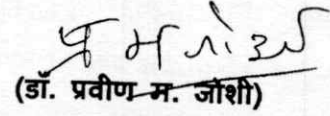 (डॉ. प्रवीण म. जोशी)